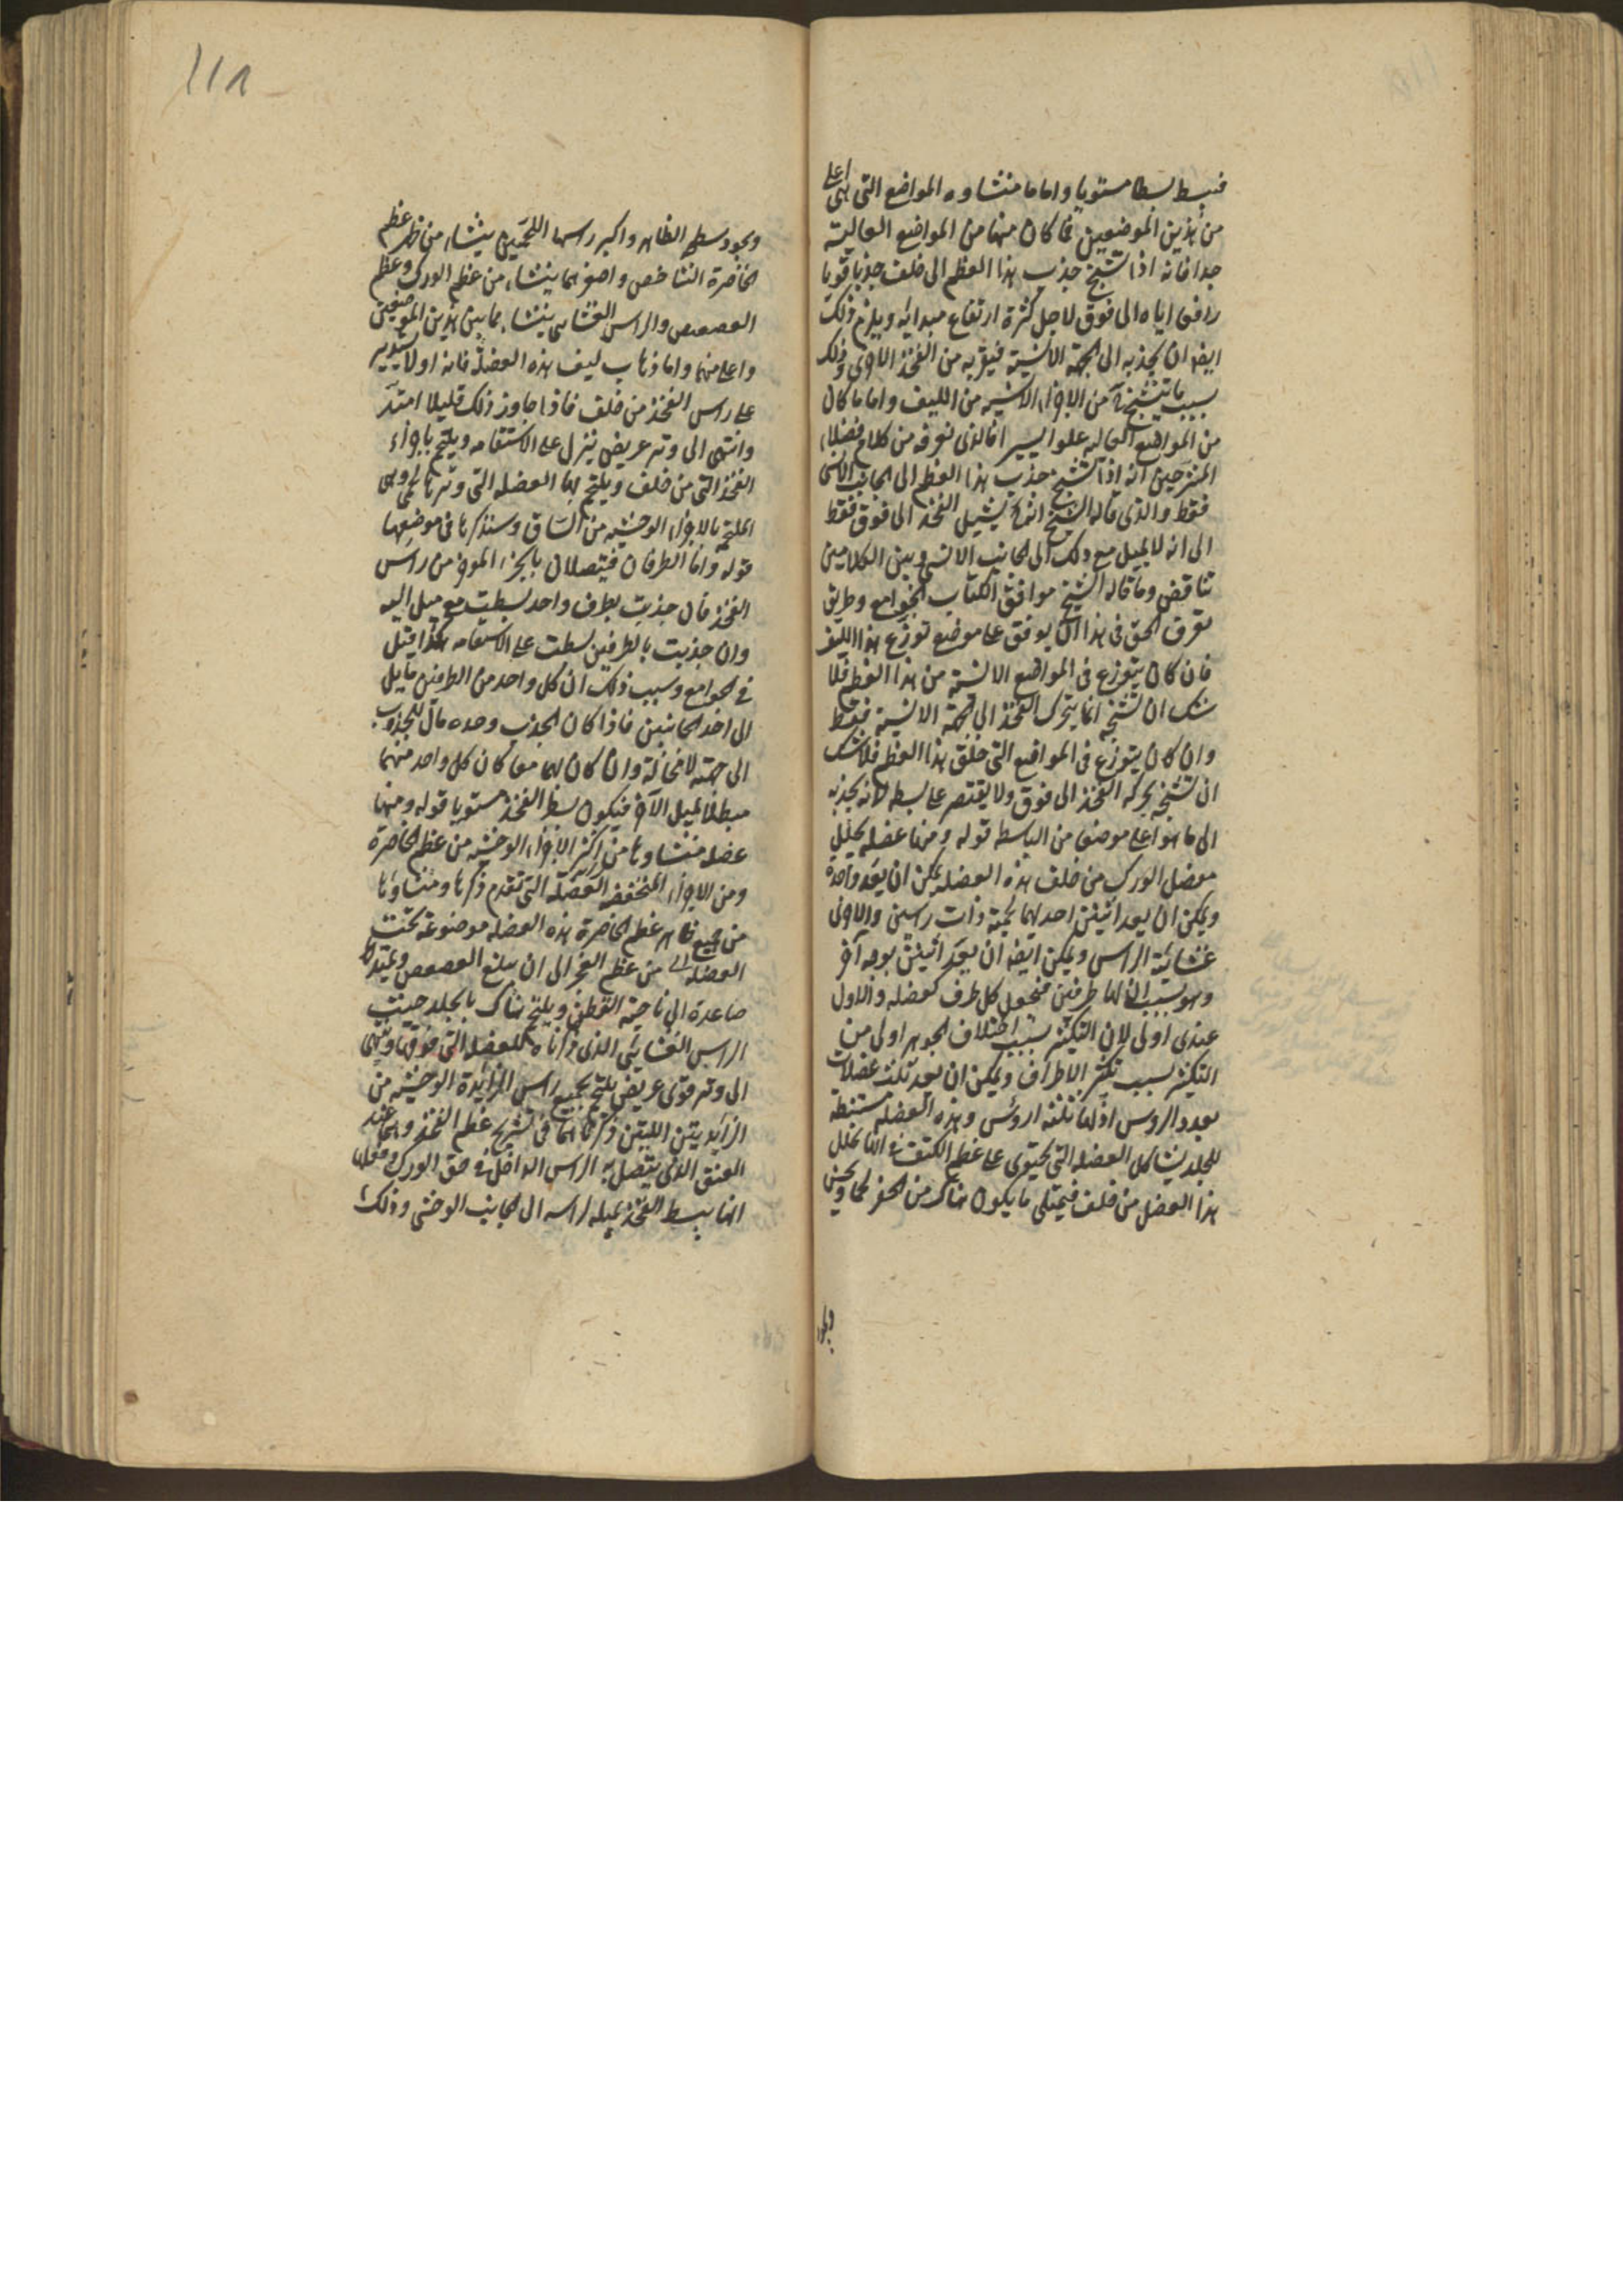 فيبسط بسطا مستويا واما ما منشاوه المواضع التى هى اعلى
من هذين الموضعين فما كان منها من المواضع العالية
جدا فانه اذا تشنج جذب هذا العظم الى خلف جذبا قويا
رافعا اياه الى فوق لاجل كثرة ارتفاع مبدائه ويلزم ذلك
ايضا ان يجذبه الى الجهة الانسية فيقربه من الفخذ الاخرى وذلك
بسبب ما يتشنج من الاجزاء الانسية من الليف واما ما كان
من المواضع العاليه علوا يسيرا فالذى نعرفه من كلام فضلاء
المشرحين انه اذا تشنج جذب هذا العظم الى الجانب الانسى
فقط والذى قاله الشيخ انه يشيل الفخذ الى فوق فقط
الى انه لا يميل مع ذلك الى الجانب الانسى وبين الكلامين
تناقض وما قاله الشيخ موافق الكتاب الجوامع وطريق
تعرف الحق فى هذا ان يوقف على موضع توزع هذا الليف
فان كان يتوزع فى المواضع الانسية من هذا العظم فلا
شك ان تشنجه انما يحرك الفخذ الى الجهة الانسية فقط
وان كان يتوزع فى المواضع التى خلف هذا العظم فلا شك
ان تشنجه يحركه الفخذ الى فوق ولا يقتصر على بسطه لانه يجذبه
الى ما هو اعلى موضعا من الباسطه قوله ومنها عضله يجلل
مفصل الورك من خلف هذه العضله يمكن ان يعد واحدة
ويمكن ان يعد اثنين احدهما لحمية ذات راسين والاخرى
غشائية الراس ويمكن ايضا ان يعد اثنين بوجه اخر
وهو بسبب ان لها طرفين فنجعل كل طرف كعضله والاول
عندى اولى لان التكثير بسبب اختلاف الجوهر اولى من
التكثير بسبب تكثر الاطراف ويمكن ان يعد ثلث عضلات
بعدد الروس اذ لها ثلثة اروس وهذه العضله مستبطنة
للجلد يشاكل العضله التى يحتوى على عظم الكتف فى انها تجلل
هذا المفصل من خلف فيمتلى ما يكون هناك من الحفر لحما ويحسن
ويجود سطح الظاهر واكبر راسيها اللحميين ينشاء من ظهر عظم
الخاصرة الشاخص واصغرهما ينشاء من عظم الورك وعظم
العصعص والراس الغشايى ينشاء مما بين هذين الموضعين
واعلى منهما واما ذهاب ليف هذه العضلة فانه اولا يستدير
على راس الفخذ من خلف فاذا جاوز ذلك قليلا امتد
وانتهى الى وتر عريض ينزل على الاستقامه ويلتحم باجزاء
الفخذ التى من خلف ويلتحم بها العضله التى وترها لحمى وهى
الملتحم بالاجزاء الوحشيه من الساق وسنذكرها فى موضعها
قوله واما الطرفان فيتصلان بالجزء الموخر من راس
الفخذ فان جذبت بطرف واحد بسطت مع ميل اليه
وان جذبت بالطرفين بسطت على الاستقامه هكذا قيل
فى الجوامع وسبب ذلك ان كل واحد من الطرفين مايل
الى احد الجانبين فاذا كان الجذب وحده مال المجذوب
الى جهته لا محالة وان كان لهما معا كان كل واحد منهما
مبطلا لميل الاخر فيكون بسط الفخذ مستويا قوله ومنها
عضله منشاوها من اكثر الاجزاء الوحشيه من عظم الخاصرة
ومن الاجزاء المنخفضه العضلة التى تقدم ذكرها ومنشاوها
من جميع ظاهر عظم الخاصرة هذه العضله موضوعة تحت
العضله من عظم العجز الى ان يبلغ العصعص ويمتد
صاعدة الى ناحية القطن ويلتحم هناك بالجلد حيث
الراس الغشائى الذى ذكرناه للعضله التى فوقها وينتهى
الى وتر قوى عريض يلتحم بجميع راس الزايدة الوحشيه من
الزايديتين اللتين ذكرناهما فى تشريح عظم الفخذ وهما عند
العنق الذى يتصل به الراس الداخل فى حق الورك وفعلها
انها يبسط الفخذ بميله راسه الى الجانب الوحشى وذلك